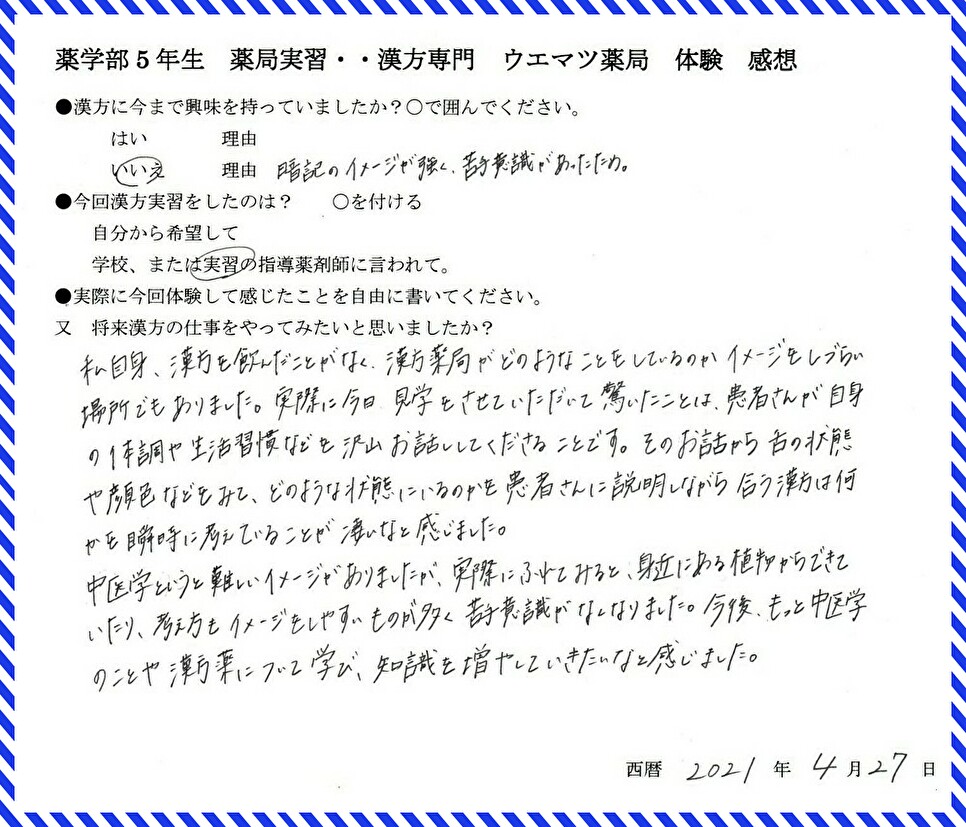 薬学部5年生　薬局実習・・漢方専門　ウエマツ薬局　体験　感想
●漢方に今まで興味を持っていましたか？○で囲んでください。
はい　理由
いいえ　理由　暗記のイメージが強く、苦手意識があったため。
●今回漢方実習をしたのは？　○を付ける
自分から希望して
学校、または実習の指導薬剤師に言われて。
●実際に今回体験して感じたことを自由に書いてください。
又　将来漢方の仕事をやってみたいと思いましたか？
私自身、漢方を飲んだことがなく、漢方薬局がどのようなことをしているのかイメージをしづらい
場所でもありました。実際に今日、見学をさせていただいて驚いたことは、患者さんが自身
の体調や生活習慣などを沢山お話ししてくださることです。そのお話から舌の状態
や顔色などをみて、どのような状態にいるのかを患者さんに説明しながら合う漢方は何
かを瞬時に考えていることが凄いなと感じました。
中医学というと難しいイメージがありましたが、実際にふれてみると、身近にある植物からできて
いたり、考え方もイメージをしやすいものが多く苦手意識がなくなりました。今後、もっと中医学
のことや漢方薬について学び、知識を増やしていきたいなと感じました。
西暦　2021年　4月27日